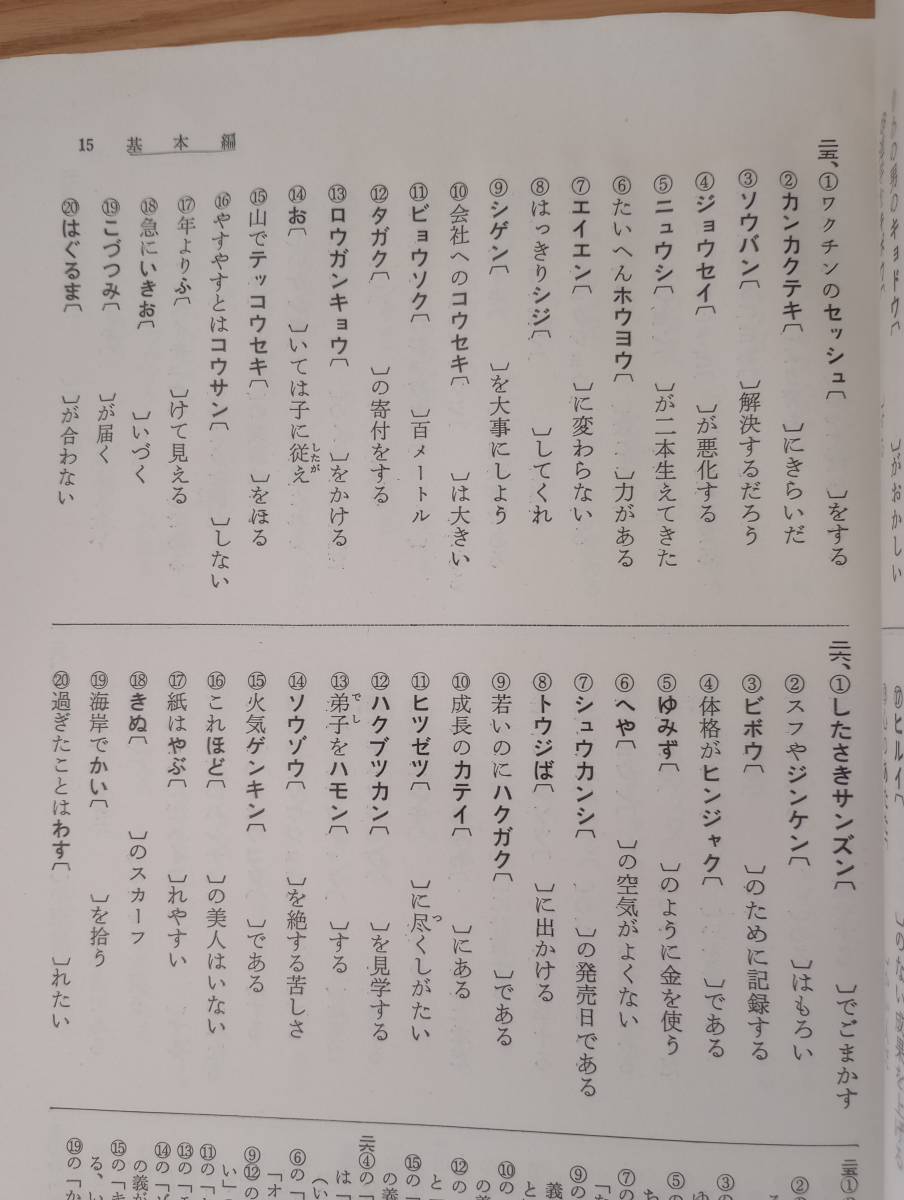 15 基本編
二五、①ワクチンのセッシュ〔 〕をする
②カンカクテキ〔 〕にきらいだ
③ソウバン〔 〕解決するだろう
④ジョウセイ〔 〕が悪化する
⑤ニュウシ〔 〕が二本生えてきた
⑥たいへんホウヨウ〔 〕力がある
⑦エイエン〔 〕に変わらない
⑧はっきりシジ〔 〕してくれ
⑨シゲン〔 〕を大事にしよう
⑩会社へのコウセキ〔 〕は大きい
⑪ビョウソク〔 〕百メートル
⑫タガク〔 〕の寄付をする
⑬ロウガンキョウ〔 〕をかける
⑭お〔 〕いては子に従え したが
⑮山でテッコウセキ〔 〕をほる
⑯やすやすとはコウサン〔 〕しない
⑰年よりふ〔 〕けて見える
⑱急にいきお〔 〕いづく
⑲こづつみ〔 〕が届く
⑳はぐるま〔 〕が合わない
二六、①したさきサンズン〔 〕でごまかす
②スフやジンケン〔 〕はもろい
③ビボウ〔 〕のために記録する
④体格がヒンジャク〔 〕である
⑤ゆみず〔 〕のように金を使う
⑥へや〔 〕の空気がよくない
⑦シュウカンシ〔 〕の発売日である
⑧トウジば〔 〕に出かける
⑨若いのにハクガク〔 〕である
⑩成長のカテイ〔 〕にある
⑪ヒツゼツ〔 〕に尽くしがたい つ
⑫ハクブツカン〔 〕を見学する
⑬弟子をハモン〔 〕する でし
⑭ソウゾウ〔 〕を絶する苦しさ
⑮火気ゲンキン〔 〕である
⑯これほど〔 〕の美人はいない
⑰紙はやぶ〔 〕れやすい
⑱きぬ〔 〕のスカーフ
⑲海岸でかい〔 〕を拾う
⑳過ぎたことはわす〔 〕れたい